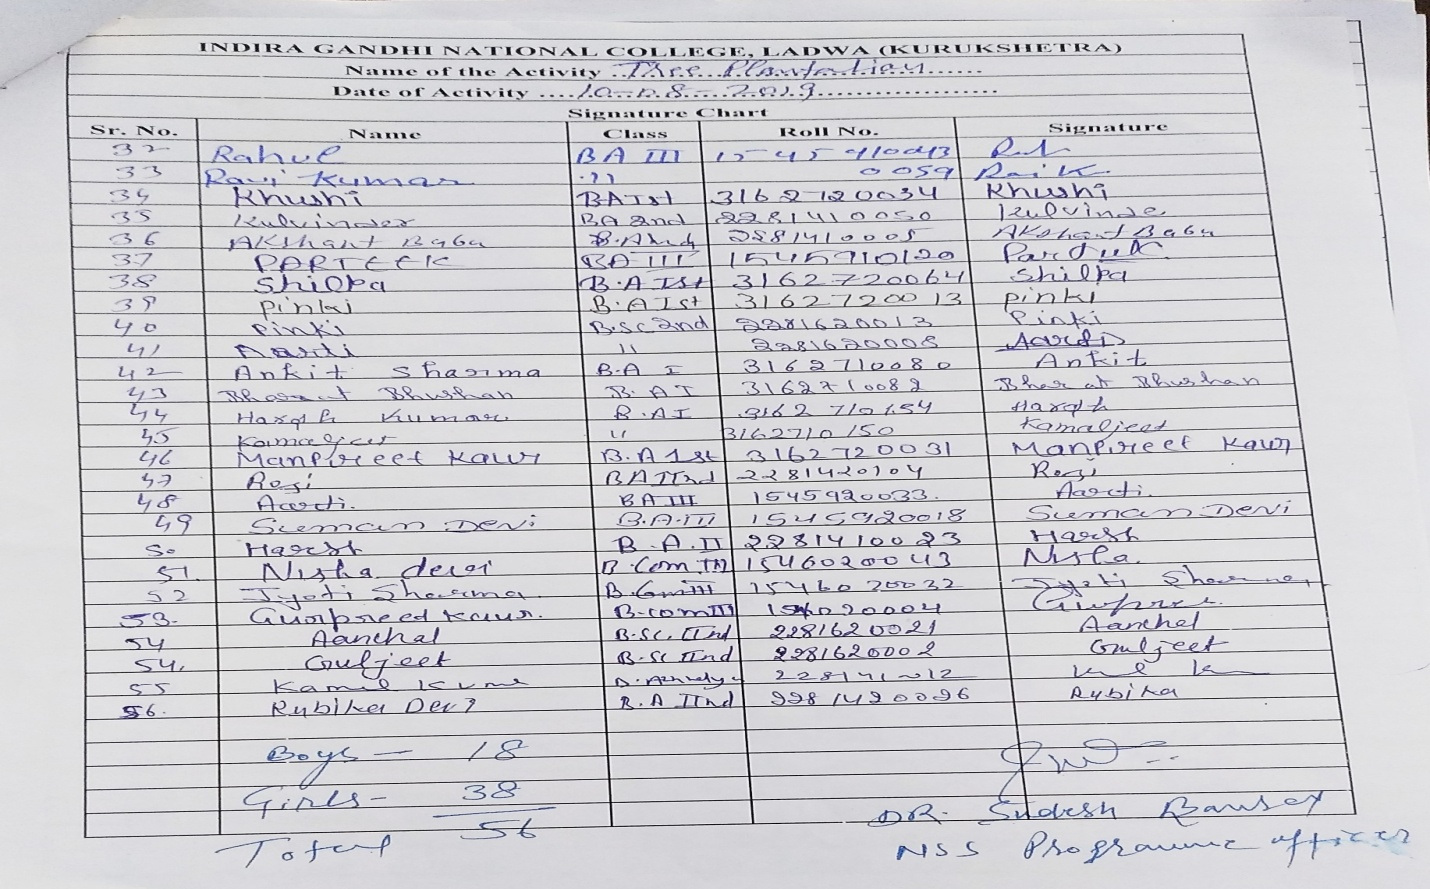 INDIRA GANDHI NATIONAL COLLEGE, LADWA (KURUKSHETRA)
Name of the Activity ..Thee..Plantation......
Date of Activity ....10-08-2019...................
Signature Chart
Sr. No. Name Class Roll No. Signature
32 Rahul BA III
33 Ravi Kumar 11 0059 Rai K.
34 Khushi BA Ist 3162720034 Khushi
35 Kulvinder BA 2nd 2281410050 Kulvinde
36 Akshant Babu B.A 2281410005 Akshant Babu
37 PARTEEK BA III 1545910120
38 Shilpa B.A Ist 3162720064 Shilpa
39 Pinki B.A Ist 3162720013 pinki
40 Pinki B.sc 2nd 2281620013 Pinki
41 Aarti 11 2281620005 Aarti
42 Ankit Sharma B.A I 3162710080 Ankit
43 Bharat Bhushan B.A I 3162710082 Bharat Bhushan
44 Kumar B.A I
45 Kamaljeet 11 3162710150 Kamaljeet
46 Manpreet Kaur B.A 1st 3162720031 Manpreet Kaur
47 Rosi BA IInd 2281420104 Rosi
48 Aarti. BA III 1545920033. Aarti.
49 Suman Devi B.A.III 1545920018 Suman Devi
50 Harsh B.A.II 2281410023 Harsh
51. Nisha devi B.Com.III 1546020043 Nisha.
52 Jyoti Sharma B.Com III 1546020032 Jyoti Sharma
53. Gurpreed Kaur. B-com III
54 Aanchal B.Sc. IInd 2281620021 Aanchal
54. Guljeet B.Sc IInd 2281620002 Guljeet
55 Kamal
56. Rubika Devi B.A IInd 2281420026 Rubika
Boys - 18
Girls- 38
Total 56
DR. Sudesh
NSS Programme officer